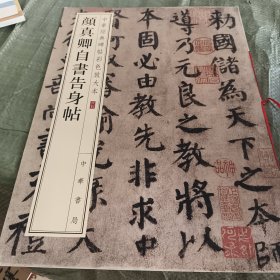 中華經典碑帖彩色放大本
顏真卿自書告身帖
中華書局
勅國儲為天
元良之教將以
由教先非求